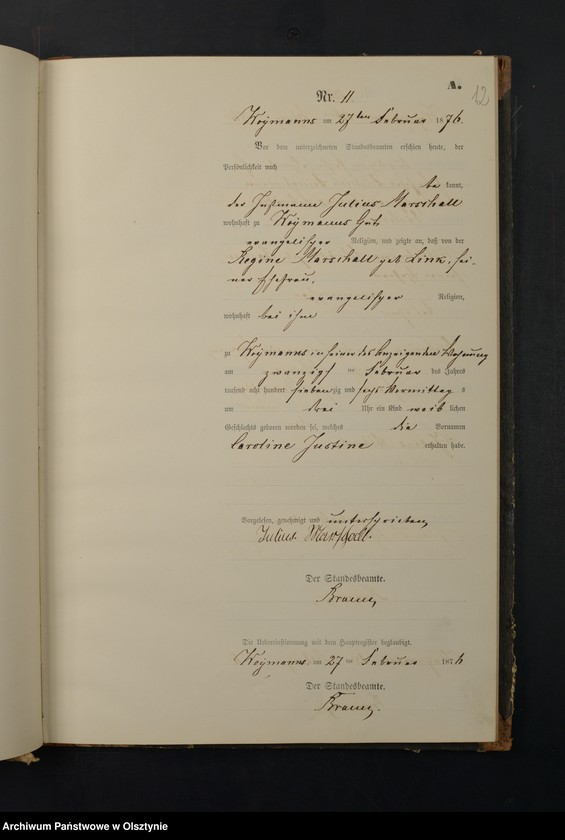 A.
12
Nr. 11.
am 27ten Februar 1876.
Vor dem unterzeichneten Standesbeamten erschien heute, der
Persönlichkeit nach
be kannt,
der Instmann Julius Marschall
wohnhaft zu Gut
evangelischer Religion, und zeigte an, daß von der
Regine Marschall geb. Link, sei-
ner Ehefrau,
evangelischer Religion,
wohnhaft bei ihm
zu in seiner des Anzeigenden Wohnung
am zwanzigsten Februar des Jahres
tausend acht hundert siebenzig und sechs Vormittags
um drei Uhr ein Kind weiblichen
Geschlechts geboren worden sei, welches die Vornamen
Caroline Justine erhalten habe.
Vorgelesen, genehmigt und unterschrieben,
Julius Marschall.
Der Standesbeamte.
Die Uebereinstimmung mit dem Hauptregister beglaubigt.
am 27 ten Februar 1876
Der Standesbeamte.
Archiwum Państwowe w Olsztynie